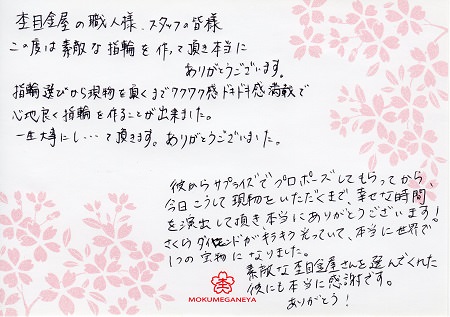 杢目金屋の職人様、スタッフの皆様
この度は素敵な指輪を作って頂き本当に
ありがとうございます。
指輪選びから現物を頂くまでワクワク感ドキドキ感満載で
心地良く指輪を作ることが出来ました。
一生大事にし…て頂きます。ありがとうございました。
彼からサプライズでプロポーズしてもらってから、
今日こうして現物をいただくまで、幸せな時間
を演出して頂き、本当にありがとうございます!
さくらダイヤモンドがキラキラ光っていて、本当に世界で
1つの宝物になりました。
素敵な杢目金屋さんを選んでくれた
彼にも本当に感謝です。
ありがとう!
杢
MOKUMEGANEYA